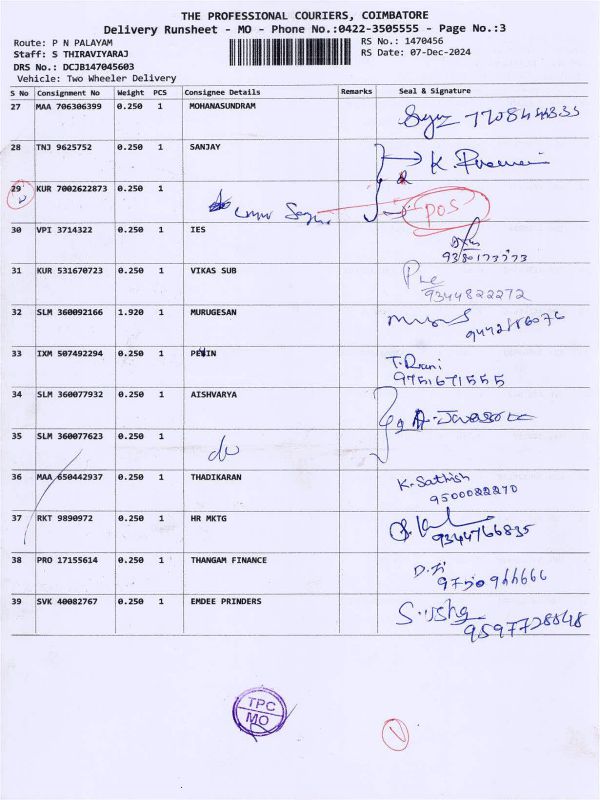 THE PROFESSIONAL COURIERS, COIMBATORE
Delivery Runsheet - MO - Phone No.:0422-3505555 - Page No.:3
Route: P N PALAYAM
RS No.: 1470456
Staff: S THIRAVIYARAJ
RS Date: 07-Dec-2024
DRS No.: DCJB147045603
Vehicle: Two Wheeler Delivery
S No Consignment No Weight PCS Consignee Details Remarks Seal & Signature
27 MAA 706306399 0.250 1 MOHANASUNDRAM
28 TNJ 9625752 0.250 1 SANJAY
29 KUR 7002622873 0.250 1
POS
30 VPI 3714322 0.250 1 IES
31 KUR 531670723 0.250 1 VIKAS SUB
9344822272
32 SLM 360092166 1.920 1 MURUGESAN
33 IXM 507492294 0.250 1 PEVIN T. Rani
9751671555
34 SLM 360077932 0.250 1 AISHVARYA
35 SLM 360077623 0.250 1 do
36 MAA 650442937 0.250 1 THADIKARAN K. Sathish
9500022270
37 RKT 9890972 0.250 1 HR MKTG
9344766835
38 PRO 17155614 0.250 1 THANGAM FINANCE
39 SVK 40082767 0.250 1 EMDEE PRINDERS
TPC
MO